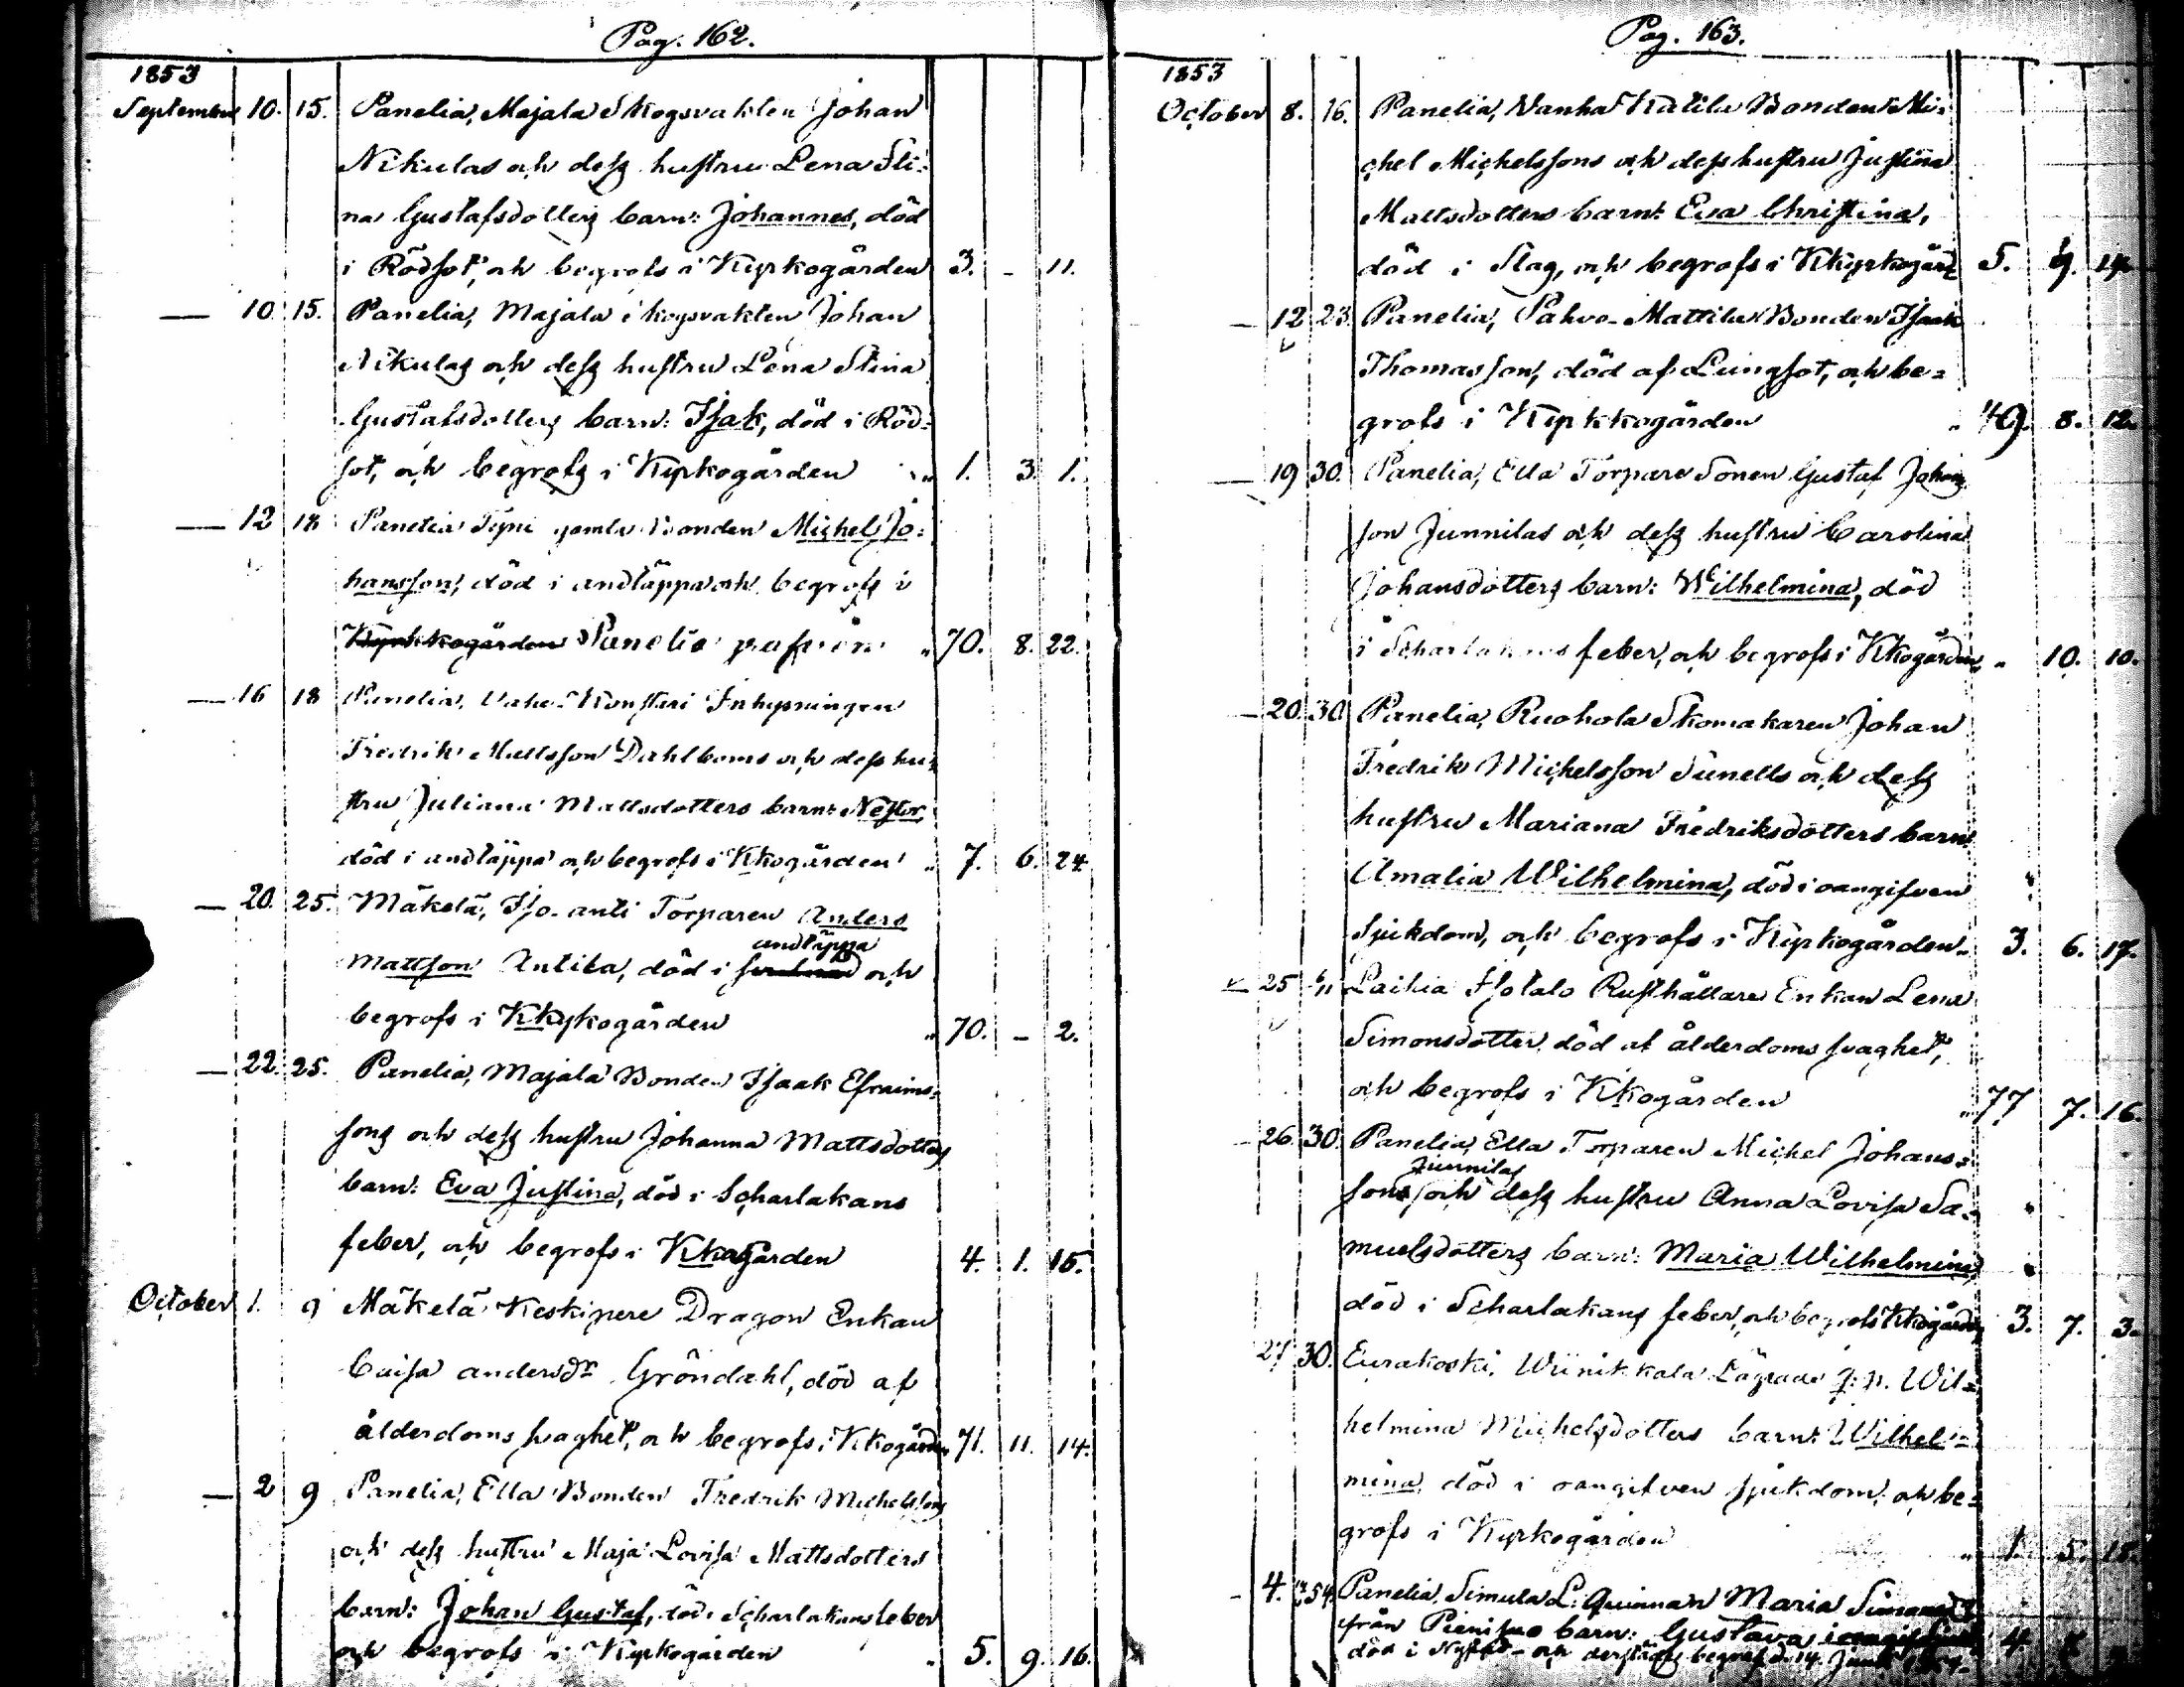 Pag. 162.
1853
September 10. 15. Panelia, Majala Skogsvakten Johan
Nikulas och dess hustru Lena Sti-
na Gustafsdotters barn: Johannes, död
i Rödsot, och begrofs i Kyrkogården 3. - 11.
— 10. 15. Panelia, Majala skogsvakten Johan
Nikulas och dess hustru Lena Stina
Gustafsdotters barn: Isak, död i Röd-
sot, och begrofs i Kyrkogården „ 1. 3. 1.
— 12 18 Panelia Typi gamla Bonden Michel Jo-
hansson, död i andtäppa och begrofs i
Kyrkkogården Panelia „ 70. 8. 22.
— 16 18 Panelia, Konsteri Inhysningen
Fredrik Mattsson Dahlboms och dess hu-
stru Juliana Mattsdotters barn: Nestor,
död i andtäppa och begrofs i Kkogården „ 7. 6. 24
— 20. 25. Mäkelä, Iso-anti Torparen Anders
andtäppa
Mattson Antika, död i och
begrofs i Kkykogården „ 70. - 2.
— 22. 25. Panelia, Majala Bonden Isaak Efraims-
sons och dess hustru Johanna Mattsdotters
barn: Eva Justina, död i Scharlakans
feber, och begrofs i Kkogården 4. 1. 15.
October 1. 9 Mäkelä Keskipere Dragon Enkan
Caisa andersdr Gröndahl, död af
ålderdoms svaghet, och begrofs i Kkogården 71. 11. 14.
— 2 9 Panelia, Ella Bonden Fredrik Michelssons
och dess hustru Maja Lovisa Mattsdotters
barn: Johan Gustaf, död i Scharlakans feber
och begrofs i Kyrkogården „ 5. 9. 16.
Pag. 163.
1853
October 8. 16. Panelia, Vanha Katila Bonden Mi-
chel Michelssons och dess hustru Justina
Mattsdotters barn: Eva Christina,
död i Slag, och begrofs i Kkyrkogård 5. 9. 14.
— 12 23. Panelia, Pahvo-Mattila Bonden Isaak
Thomasson, död af Lungsot, och be-
grofs i Kyrkkogården „ 49. 8. 12.
— 19 30. Panelia, Ella Torpare Sonen Gustaf Johans
son Junnilas och dess hustru Carolina
Johansdotters barn: Wilhelmina, död
i Scharlakans feber, och begrofs i Kkogården „ 10. 10.
— 20. 30. Panelia, Ruohola Skomakaren Johan
Fredrik Michelsson Sunells och dess
hustru Mariana Fredriksdotters barn:
Amalia Wilhelmina, död i oangifven
sjukdom, och begrofs i Kyrkogården „ 3. 6. 17.
— 25 6/11 Laihia Isotalo Rusthållare Enkan Lena
Simonsdotter död af ålderdoms svaghet,
och begrofs i Kkogården „ 77 7. 16.
— 26. 30. Panelia, Ella Torparen Michel Johans-
Junnilas
sons och dess hustru Anna Lovisa Sa-
muelsdotters barn: Maria Wilhelmina,
död i Scharlakans feber, och begrofs Kkogården 3. 7. 3.
27 30. Eurakoski, Wiinikkala Lägrade q:p. Wil-
helmina Michelsdotters barn: Wilhel-
mina död i oangifven sjukdom, och be-
grofs i Kyrkogården „ 1. 5. 15.
— 4. 54 Panelia, Simula L. Quinnan Maria
från barn: Gustava
död i Nystad och derstädes begraf d. 14 4